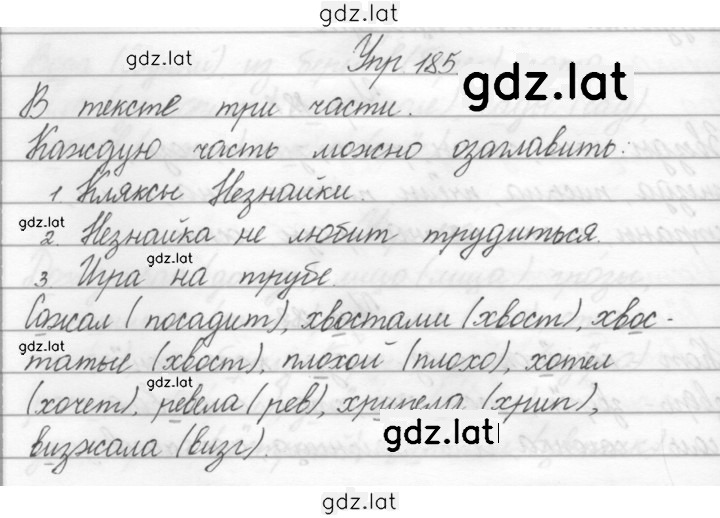 gdz.lat
gdz.lat
Упр 185
gdz.lat
В тексте три части.
Каждую часть можно озаглавить:
1. Кляксы Незнайки.
gdz.lat
2. Незнайка не любит трудиться.
gdz.lat
3. Игра на трубе.
Сажал (посадит), хвостами (хвост), хвос-
gdz.lat
татые (хвост), плохой (плохо), хотел
gdz.lat
(хочет), ревела (рев), хрипела (хрип),
визжала (визг).
gdz.lat
gdz.lat